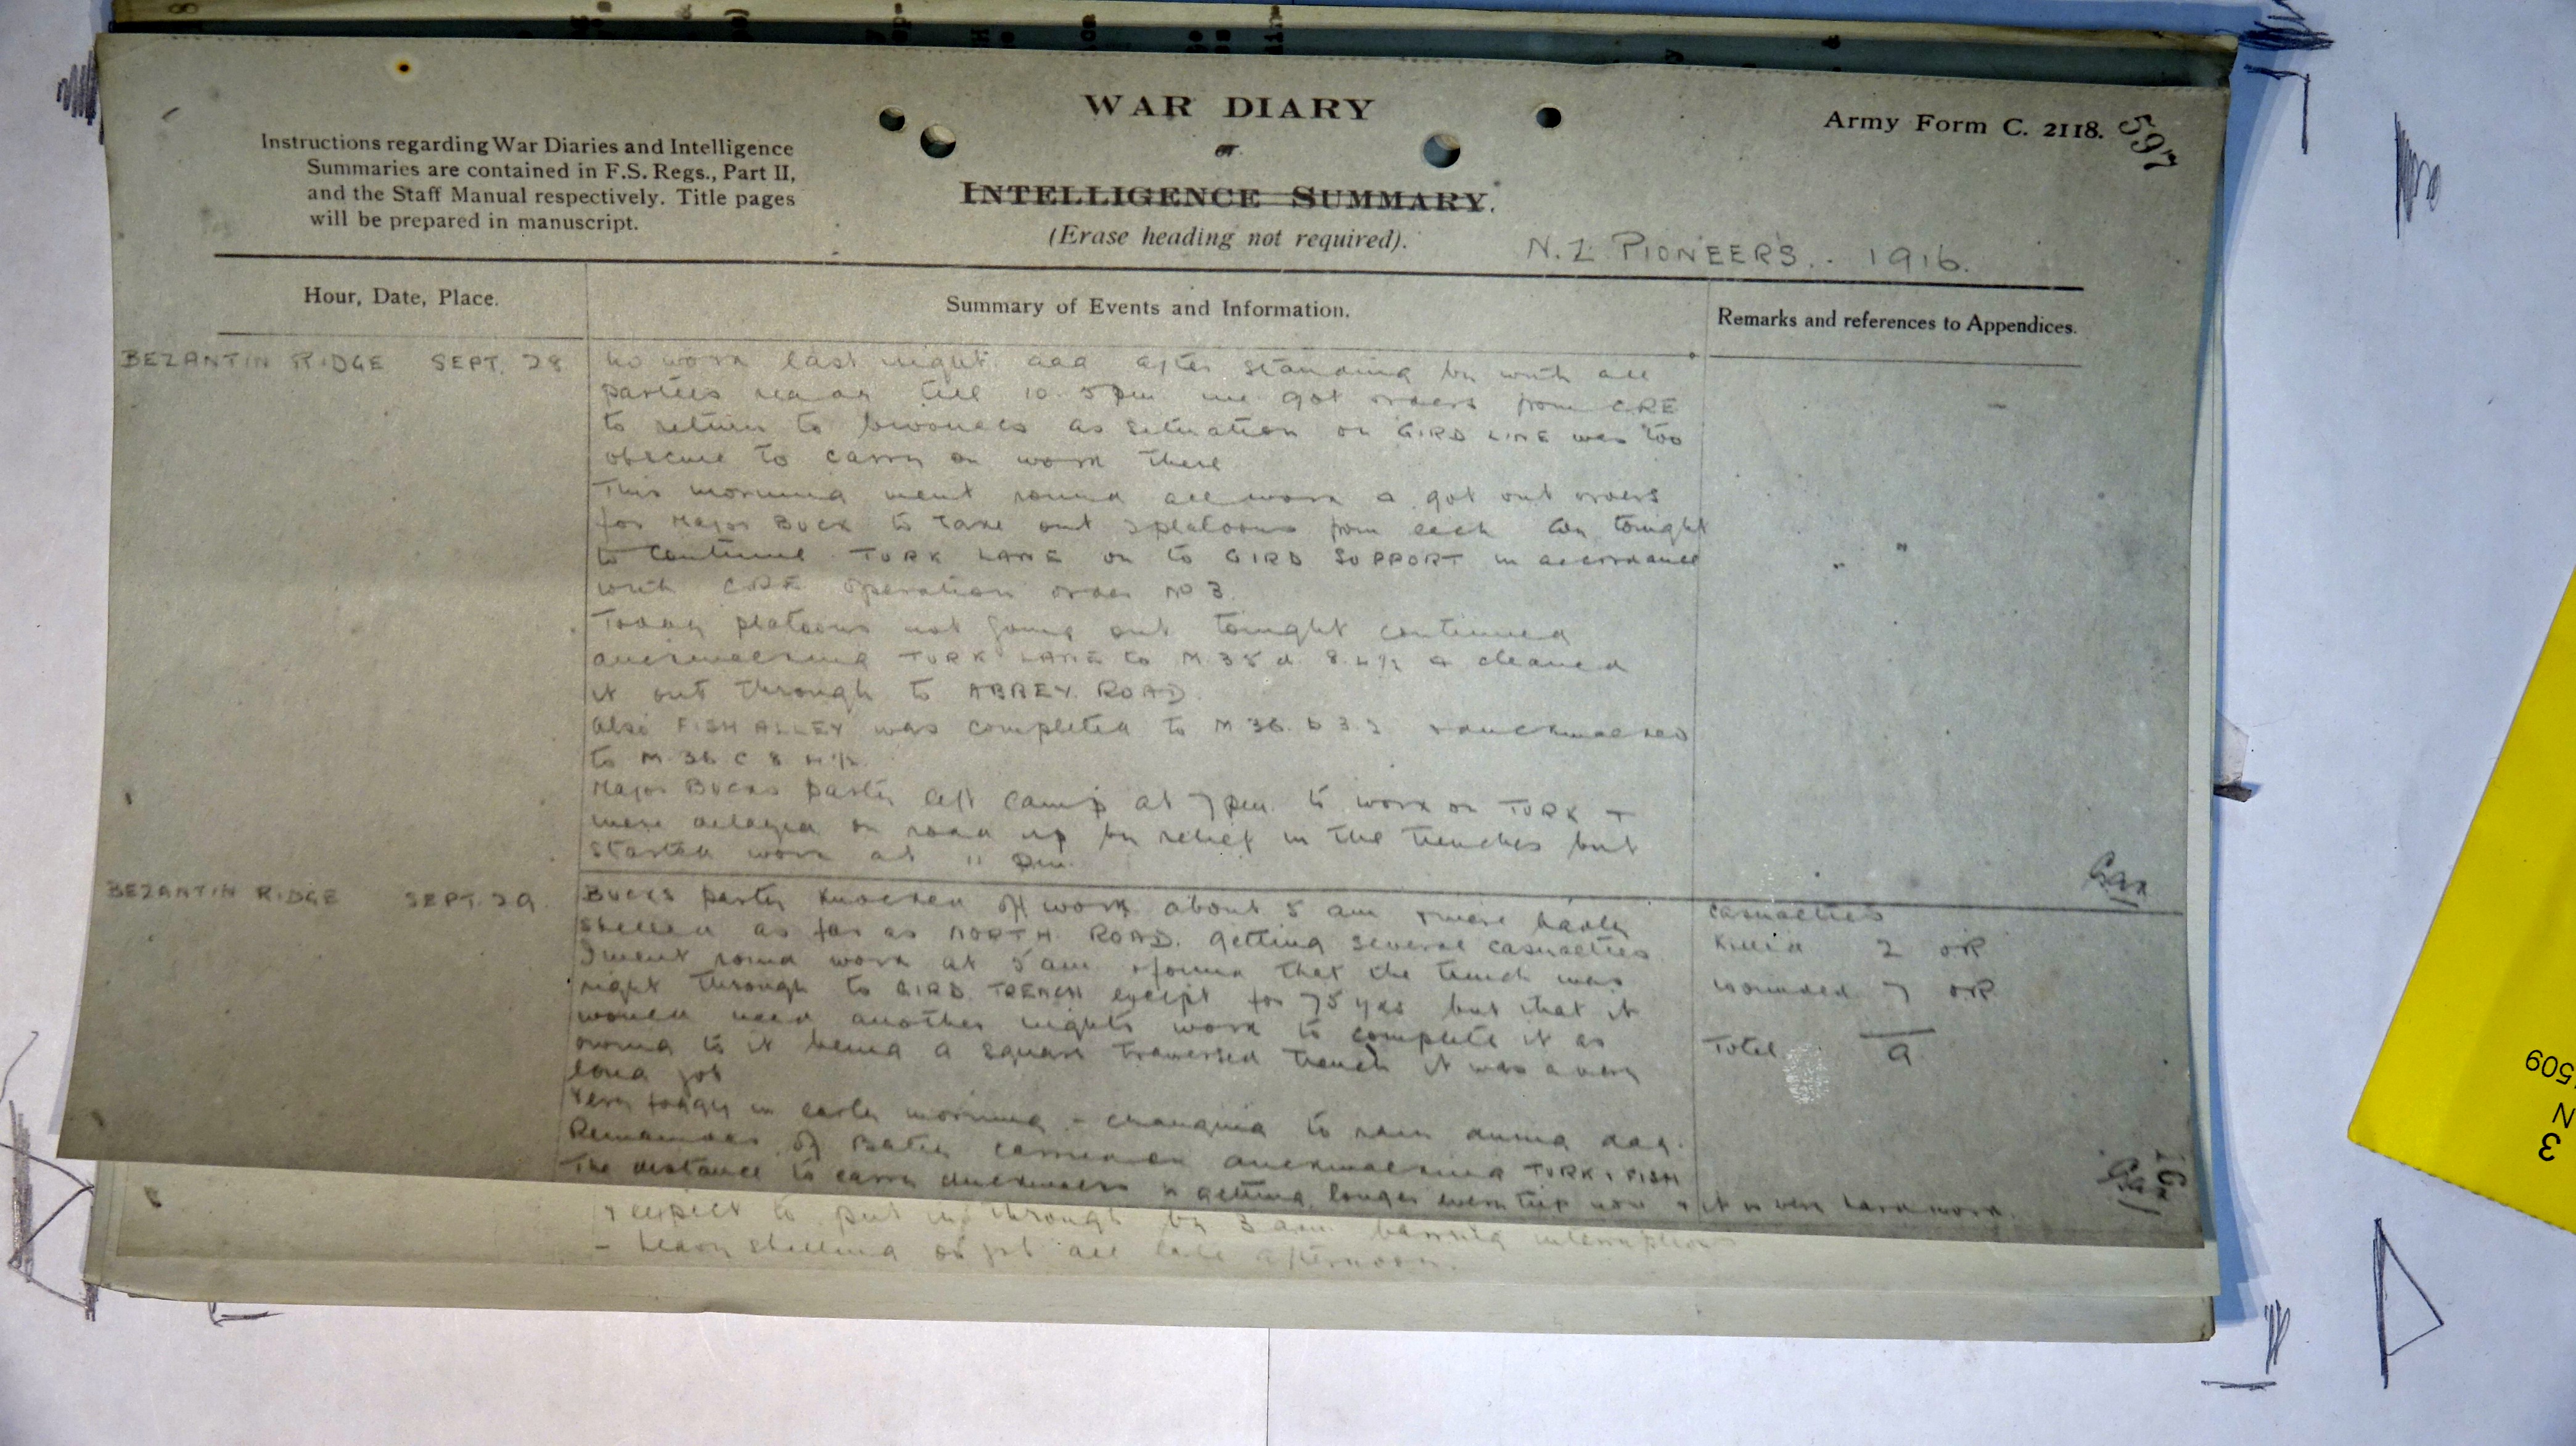 WAR DIARY
or
INTELLIGENCE SUMMARY.
(Erase heading not required).
Army Form C. 2118.
597
Instructions regarding War Diaries and Intelligence
Summaries are contained in F.S. Regs., Part II,
and the Staff Manual respectively. Title pages
will be prepared in manuscript.
N.Z PIONEERS. . 1916.
Hour, Date, Place.
Summary of Events and Information.
Remarks and references to Appendices.
BEZANTIN RIDGE SEPT. 28
No work last night. aaa after standing by with all
parties ready till 10.5 pm we got orders from CRE
to return to bivouacs as situation on GIRD LINE was too
obscure to carry on work there
This morning went round all work & got out orders
for Major Buck to take out 2 platoons from each Coy tonight
to continue TURK LANE on to GIRD SUPPORT in accordance
with CRE operation order No 3.
Today platoons not going out tonight continued
duckwalking TURK LANE to M.35 d. 8.4½ & cleaned
it out through to ABBEY ROAD.
Also FISH ALLEY was completed to M 36. b 3.2 & duckwalked
to M 36 C 8 4½.
Major Bucks party left camp at 7 pm. to work on TURK +
were delayed on road up by relief in the trenches but
started work at 11 pm.
BEZANTIN RIDGE SEPT. 29.
Bucks party knocked off work about 5 am & were badly
shelled as far as NORTH ROAD. getting several casualties
I went round work at 5 am & found that the trench was
right through to GIRD TRENCH except for 75 yds but that it
would need another nights work to complete it as
owing to it being a square traversed trench it was a very
long job
Very foggy in early morning - changing to rain during day.
Remainder of Battn carried on duckwalking TURK & FISH
The distance to carry duckwalks is getting longer every trip now & it is very hard work.
Casualties
Killed 2 OR
Wounded 7 OR
Total 9
& expect to put me through by 3 am. barring interruption
- heavy shelling on job all late afternoon.
509
N
3